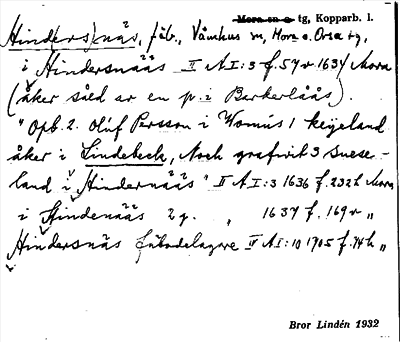 Mora sn o. tg, Kopparb. l.
Hind(ers)näs, fäb., Våmhus sn, Mora o. Orsa tg,
i Hindersnääs II A I:3 f. 57v 1634 Mora
(åker såld av en p. i Barkerlåås).
"Opb. 2. Oluf Persson i Womus 1 keyeland
åker i Lindebeck, Noch grafivit 3 snese-
land i Hindernääs" II A I:3 1636 f. 232h Mora
i Hindenääs 2 g. " 1637 f. 169v "
Hindersnäs fäbodelagare II A I:10 1705 f. 74h "
Bror Lindén 1932